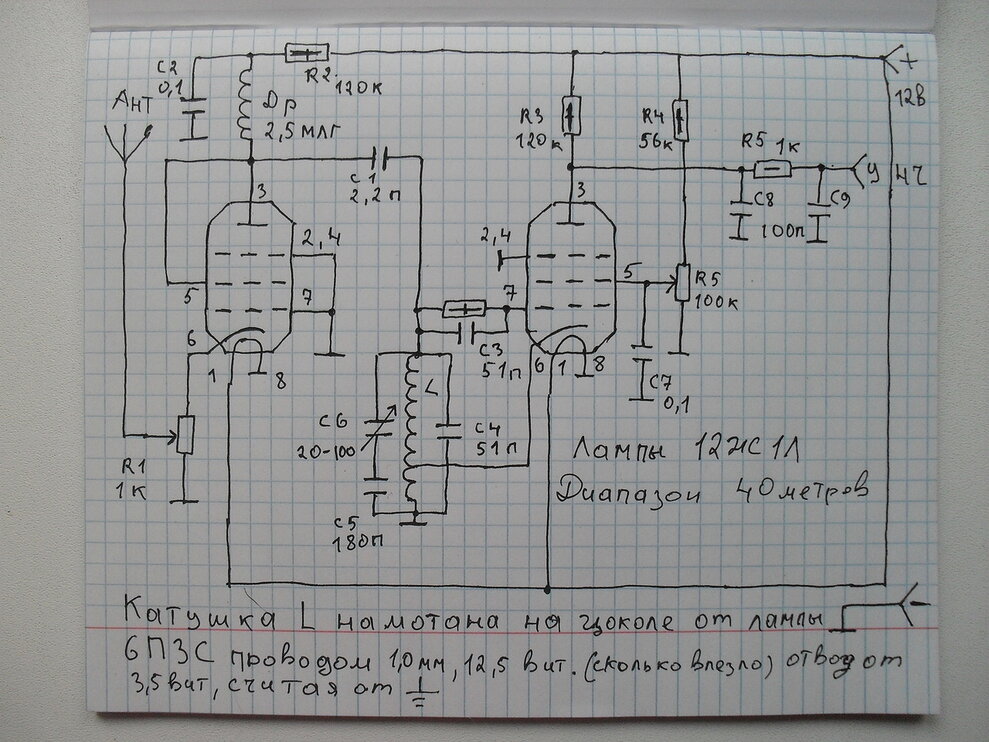 С2
0,1
R2
120к
Ант
Др
2,5 млг
С1
2,2п
R3
120к
R4
56к
R5 1к
+
12В
У НЧ
С8
100п
С9
3
2,4
5
7
6
1
8
3
2,4
7
5
6
1
8
R5
100к
С3
51п
С7
0,1
R1
1к
С6
20-100
L
С4
51п
С5
180п
Лампы 12Ж1Л
Диапазон 40метров
-
Катушка L намотана на цоколе от лампы
6П3С проводом 1,0мм, 12,5 вит. (сколько влезло) отвод от
3,5вит, считая от